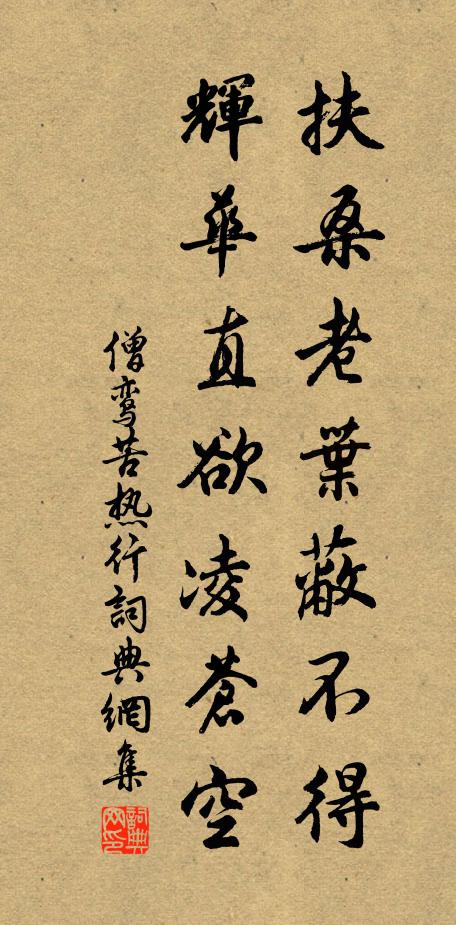 扶桑老葉蔽不得
輝華直欲凌蒼空
僧鸾苦热行詞典網集
詞典网印